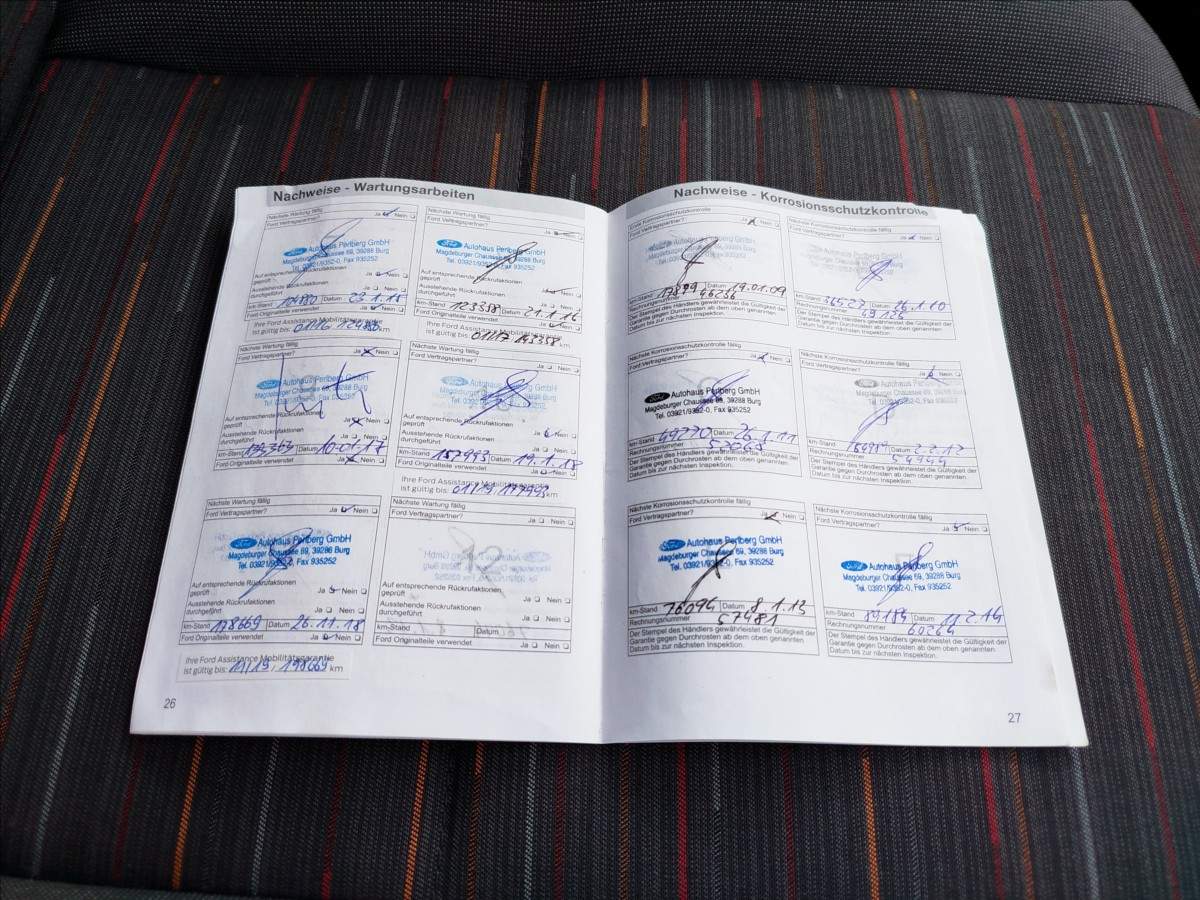 Nachweise - Wartungsarbeiten
Nächste Wartung fällig
Ford Vertragspartner? Ja Nein
Ford Autohaus Perlberg GmbH
Magdeburger Chaussee 69, 39288 Burg
Tel. 03921/9352-0, Fax 935252
Auf entsprechende Rückrufaktionen
geprüft Ja Nein
Ausstehende Rückrufaktionen
durchgeführt Ja Nein
km-Stand Datum 23.1.15
Ford Originalteile verwendet Ja Nein
Ihre Ford Assistance Mobilitätsgarantie
ist gültig bis: 01/16 km
Nächste Wartung fällig
Ford Vertragspartner? Ja Nein
Ford Autohaus Perlberg GmbH
Magdeburger Chaussee 69, 39288 Burg
Tel. 03921/9352-0, Fax 935252
Auf entsprechende Rückrufaktionen
geprüft Ja Nein
Ausstehende Rückrufaktionen
durchgeführt Ja Nein
km-Stand 123358 Datum 21.1.16
Ford Originalteile verwendet Ja Nein
Ihre Ford Assistance Mobilitätsgarantie
ist gültig bis: 01/17 143358 km
Nächste Wartung fällig
Ford Vertragspartner? Ja Nein
Ford Autohaus Perlberg GmbH
Magdeburger Chaussee 69, 39288 Burg
Auf entsprechende Rückrufaktionen
geprüft Ja Nein
Ausstehende Rückrufaktionen
durchgeführt Ja Nein
km-Stand Datum 10.01.17
Ford Originalteile verwendet Ja Nein
Nächste Wartung fällig
Ford Vertragspartner? Ja Nein
Ford Autohaus Perlberg GmbH
Magdeburger Chaussee 69, 39288 Burg
Tel. 03921/9352-0, Fax 935252
Auf entsprechende Rückrufaktionen
geprüft Ja Nein
Ausstehende Rückrufaktionen
durchgeführt Ja Nein
km-Stand 157993 Datum 19.1.18
Ford Originalteile verwendet Ja Nein
Ihre Ford Assistance Mobilitätsgarantie
ist gültig bis: 01/19, 177993 km
Nächste Wartung fällig
Ford Vertragspartner? Ja Nein
Ford Autohaus Perlberg GmbH
Magdeburger Chaussee 69, 39288 Burg
Tel. 03921/9352-0, Fax 935252
Auf entsprechende Rückrufaktionen
geprüft Ja Nein
Ausstehende Rückrufaktionen
durchgeführt Ja Nein
km-Stand 178669 Datum 26.11.18
Ford Originalteile verwendet Ja Nein
Ihre Ford Assistance Mobilitätsgarantie
ist gültig bis: 11/19, 198669 km
Nächste Wartung fällig
Ford Vertragspartner? Ja Nein
Auf entsprechende Rückrufaktionen
geprüft Ja Nein
Ausstehende Rückrufaktionen
durchgeführt Ja Nein
km-Stand Datum
Ford Originalteile verwendet Ja Nein
26
Nachweise - Korrosionsschutzkontrolle
Erste Korrosionsschutzkontrolle
Ford Vertragspartner? Ja Nein
km-Stand 17879 Datum 19.01.09
Rechnungsnummer 46236
Der Stempel des Händlers gewährleistet die Gültigkeit der
Garantie gegen Durchrosten ab dem oben genannten
Datum bis zur nächsten Inspektion.
Nächste Korrosionsschutzkontrolle fällig
Ford Vertragspartner? Ja Nein
km-Stand 36527 Datum 26.1.10
Rechnungsnummer 49125
Der Stempel des Händlers gewährleistet die Gültigkeit der
Garantie gegen Durchrosten ab dem oben genannten
Datum bis zur nächsten Inspektion.
Nächste Korrosionsschutzkontrolle fällig
Ford Vertragspartner? Ja Nein
Ford Autohaus Perlberg GmbH
Magdeburger Chaussee 69, 39288 Burg
Tel. 03921/9352-0, Fax 935252
km-Stand 49770 Datum 26.1.11
Rechnungsnummer
Der Stempel des Händlers gewährleistet die Gültigkeit der
Garantie gegen Durchrosten ab dem oben genannten
Datum bis zur nächsten Inspektion.
Nächste Korrosionsschutzkontrolle fällig
Ford Vertragspartner? Ja Nein
Ford Autohaus Perlberg GmbH
Magdeburger Chaussee 69, 39288 Burg
Tel. 03921/9352-0, Fax 935252
km-Stand Datum 2.2.12
Rechnungsnummer
Der Stempel des Händlers gewährleistet die Gültigkeit der
Garantie gegen Durchrosten ab dem oben genannten
Datum bis zur nächsten Inspektion.
Nächste Korrosionsschutzkontrolle fällig
Ford Vertragspartner? Ja Nein
Ford Autohaus Perlberg GmbH
Magdeburger Chaussee 69, 39288 Burg
Tel. 03921/9352-0, Fax 935252
km-Stand 76094 Datum 8.1.13
Rechnungsnummer 57481
Der Stempel des Händlers gewährleistet die Gültigkeit der
Garantie gegen Durchrosten ab dem oben genannten
Datum bis zur nächsten Inspektion.
Nächste Korrosionsschutzkontrolle fällig
Ford Vertragspartner? Ja Nein
Ford Autohaus Perlberg GmbH
Magdeburger Chaussee 69, 39288 Burg
Tel. 03921/9352-0, Fax 935252
km-Stand 89184 Datum 11.2.14
Rechnungsnummer 60264
Der Stempel des Händlers gewährleistet die Gültigkeit der
Garantie gegen Durchrosten ab dem oben genannten
Datum bis zur nächsten Inspektion.
27